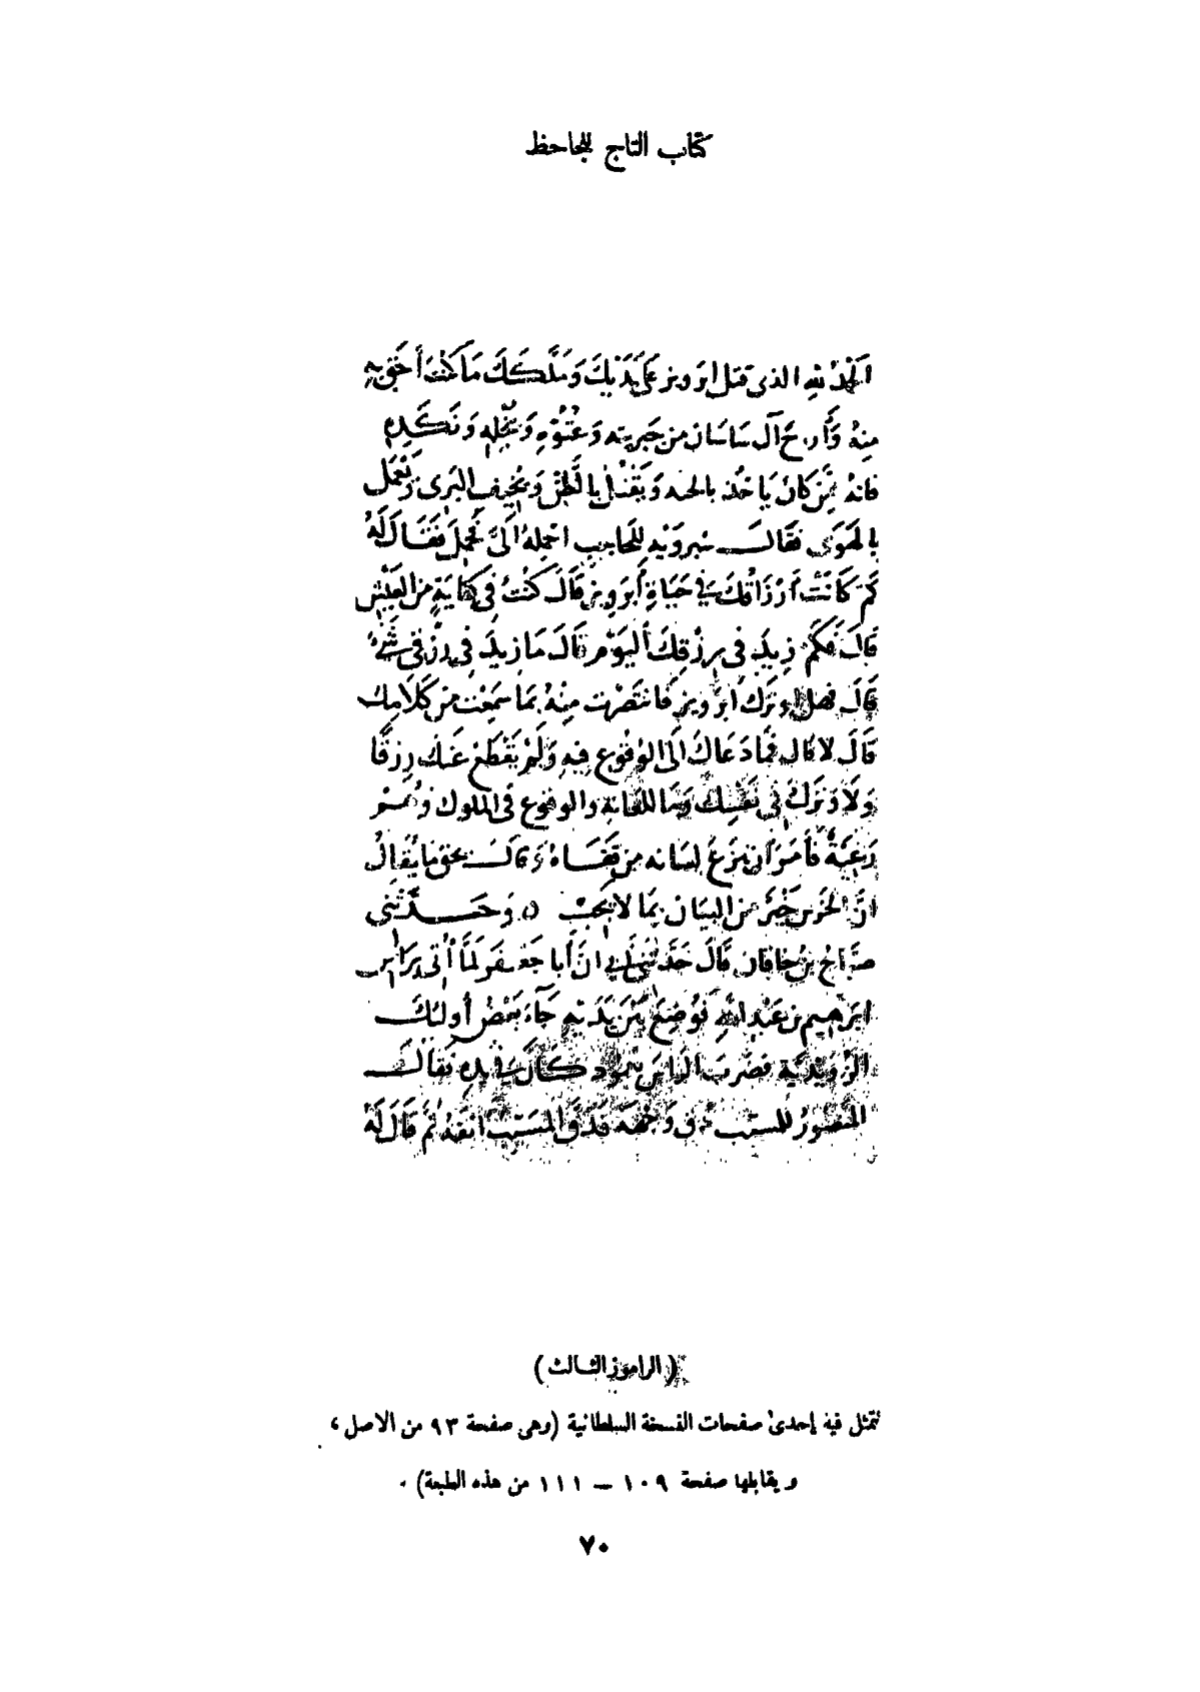 كتاب التاج للجاحظ
اَلْحَمْدُ للهِ الذى قتل ابَرويز عَلى يَدَيْكَ وَمَلَّكَكَ مَا كُنْتَ أَحَقَّ بِهِ
مِنْهُ وَأَراحَ آل سَاسَان من جَبريته وَعُتُوِّهِ وَبُخْلِهِ وَنَكَدِهِ
فانهُ مِمَّن كانَ يَاخُذ بالحنه وَيَقْتُلُ بالظَّنِّ وَيُخِيفُ البَرِى وَيَعْمَل
بالهَوَى فقَالَ شيرويه للحَاجِبِ احْمِلهُ الَىَّ فَحُمِلَ فقَالَ لَهُ
كَمْ كَانَتْ أَرْزَاقُكَ فِي حَيَاةِ أَبَروِيز قَالَ كُنْتُ فِى كِفَايَةٍ مِن العَيْشِ
قَالَ فَكَمْ زِيدَ فى رِزْقِكَ اليَوْمَ قَالَ مَا زِيدَ فِى رِزْقى شَىْءٌ
قَالَ فهل وَتَرَكَ ابرَويز فَانتَصَرْت مِنْهُ بمَا سَمِعْت مِن كَلَامِكَ
قَالَ لا قال فمَا دَعَاكَ الَى الوُقُوعِ فِيهِ وَلَمْ يَقْطَعْ عَنكَ رِزقًا
وَلَا وَتَرَكَ فى نَفْسِكَ وَمَا للعَامَّةِ والوقوع فى الملوك وَهُمْ
رَعِيَّةٌ فأَمَرَ ان ينزَعَ لِسَانه مِن قَفَاهُ وَقالَ بحق مَا يُقَالُ
انَّ الخرَس خَيْرٌ مِن البيَان بِمَا لا يَجِبُ ۞ وَحَدَّثَنى
صَبَّاحُ بن خاقان قَالَ حَدَّثَنى أَبى انَّ أَبا جَعْفَر لَمَّا أُتِى بِرَأسِ
ابرَهِيم بن عَبْدِ اللهِ فوُضِعَ بَيْنَ يَدَيْهِ جَآءَ بَعْضُ أُولئكَ
الرَّوَنْدِيَّة فضَرَبَ الرأسَ بعَمُودٍ كَانَ فى يَدِهِ فقَالَ
المَنْصُورُ للمسَيّب دُق وَجْهَهُ فَدَقَّ المسَيَّبُ انفَهُ ثمَّ قَالَ لَهُ
(الراموز الثالث)
تتمثل فيه إحدى صفحات النسخة السلطانية (وهى صفحة ٩٣ من الأصل ،
ويقابلها صفحة ١٠٩ — ١١١ من هذه الطبعة) .
٧٠